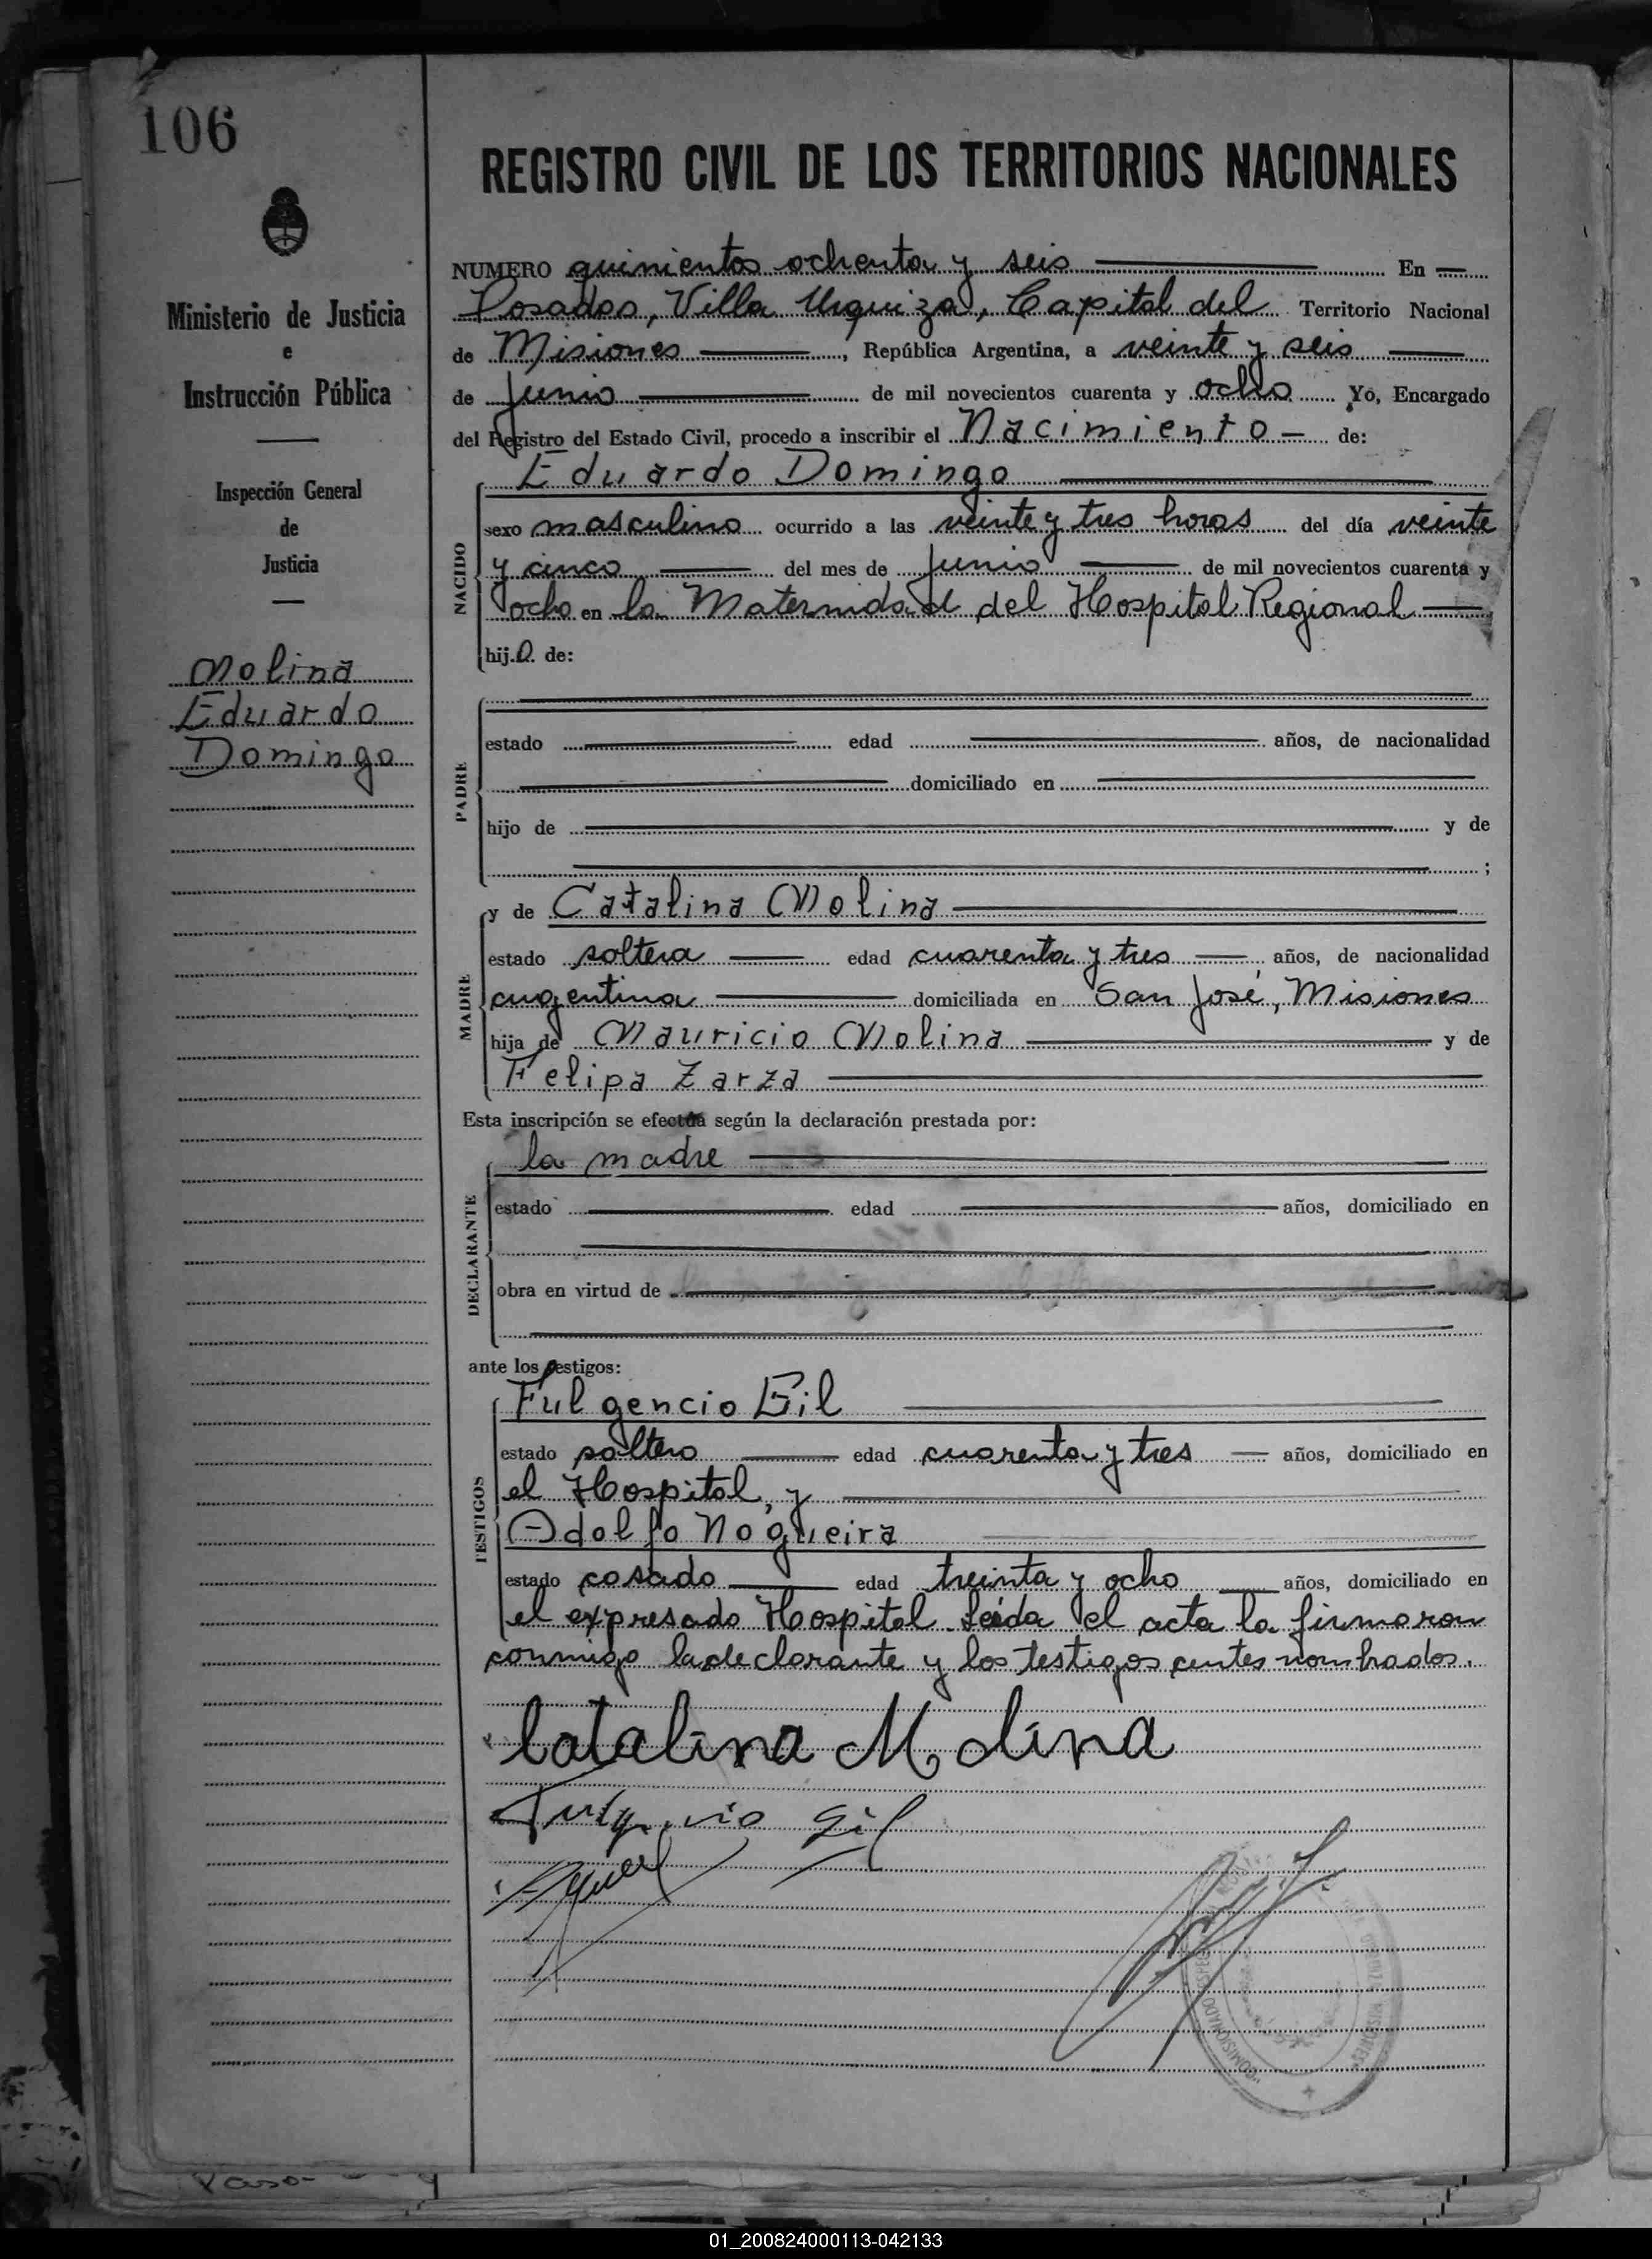 106
REGISTRO CIVIL DE LOS TERRITORIOS NACIONALES
Ministerio de Justicia
e
Instrucción Pública
Inspección General
de
Justicia
Molina
Eduardo
Domingo
NUMERO quinientos ochenta y seis En
Posadas, Villa Urquiza, Capital del Territorio Nacional
de Misiones, República Argentina, a veinte y seis
de junio de mil novecientos cuarenta y ocho Yo, Encargado
del Registro del Estado Civil, procedo a inscribir el Nacimiento - de:
Eduardo Domingo
NACIDO
sexo masculino ocurrido a las veinte y tres horas del día veinte
y cinco del mes de junio de mil novecientos cuarenta y
ocho en la Maternidad del Hospital Regional
hijo de:
PADRE
estado edad años, de nacionalidad
domiciliado en
hijo de y de
;
MADRE
y de Catalina Molina
estado soltera edad cuarenta y tres años, de nacionalidad
argentina domiciliada en San José, Misiones
hija de Mauricio Molina y de
Felipa Zarza
Esta inscripción se efectúa según la declaración prestada por:
DECLARANTE
la madre
estado edad años, domiciliado en
obra en virtud de
ante los testigos:
TESTIGOS
Fulgencio Gil
estado soltero edad cuarenta y tres años, domiciliado en
el Hospital, y
Adolfo Nogueira
estado casado edad treinta y ocho años, domiciliado en
el expresado Hospital. Leída el acta la firmaron
conmigo la declarante y los testigos antes nombrados.
Catalina Molina
Fulgencio Gil
01_200824000113-042133